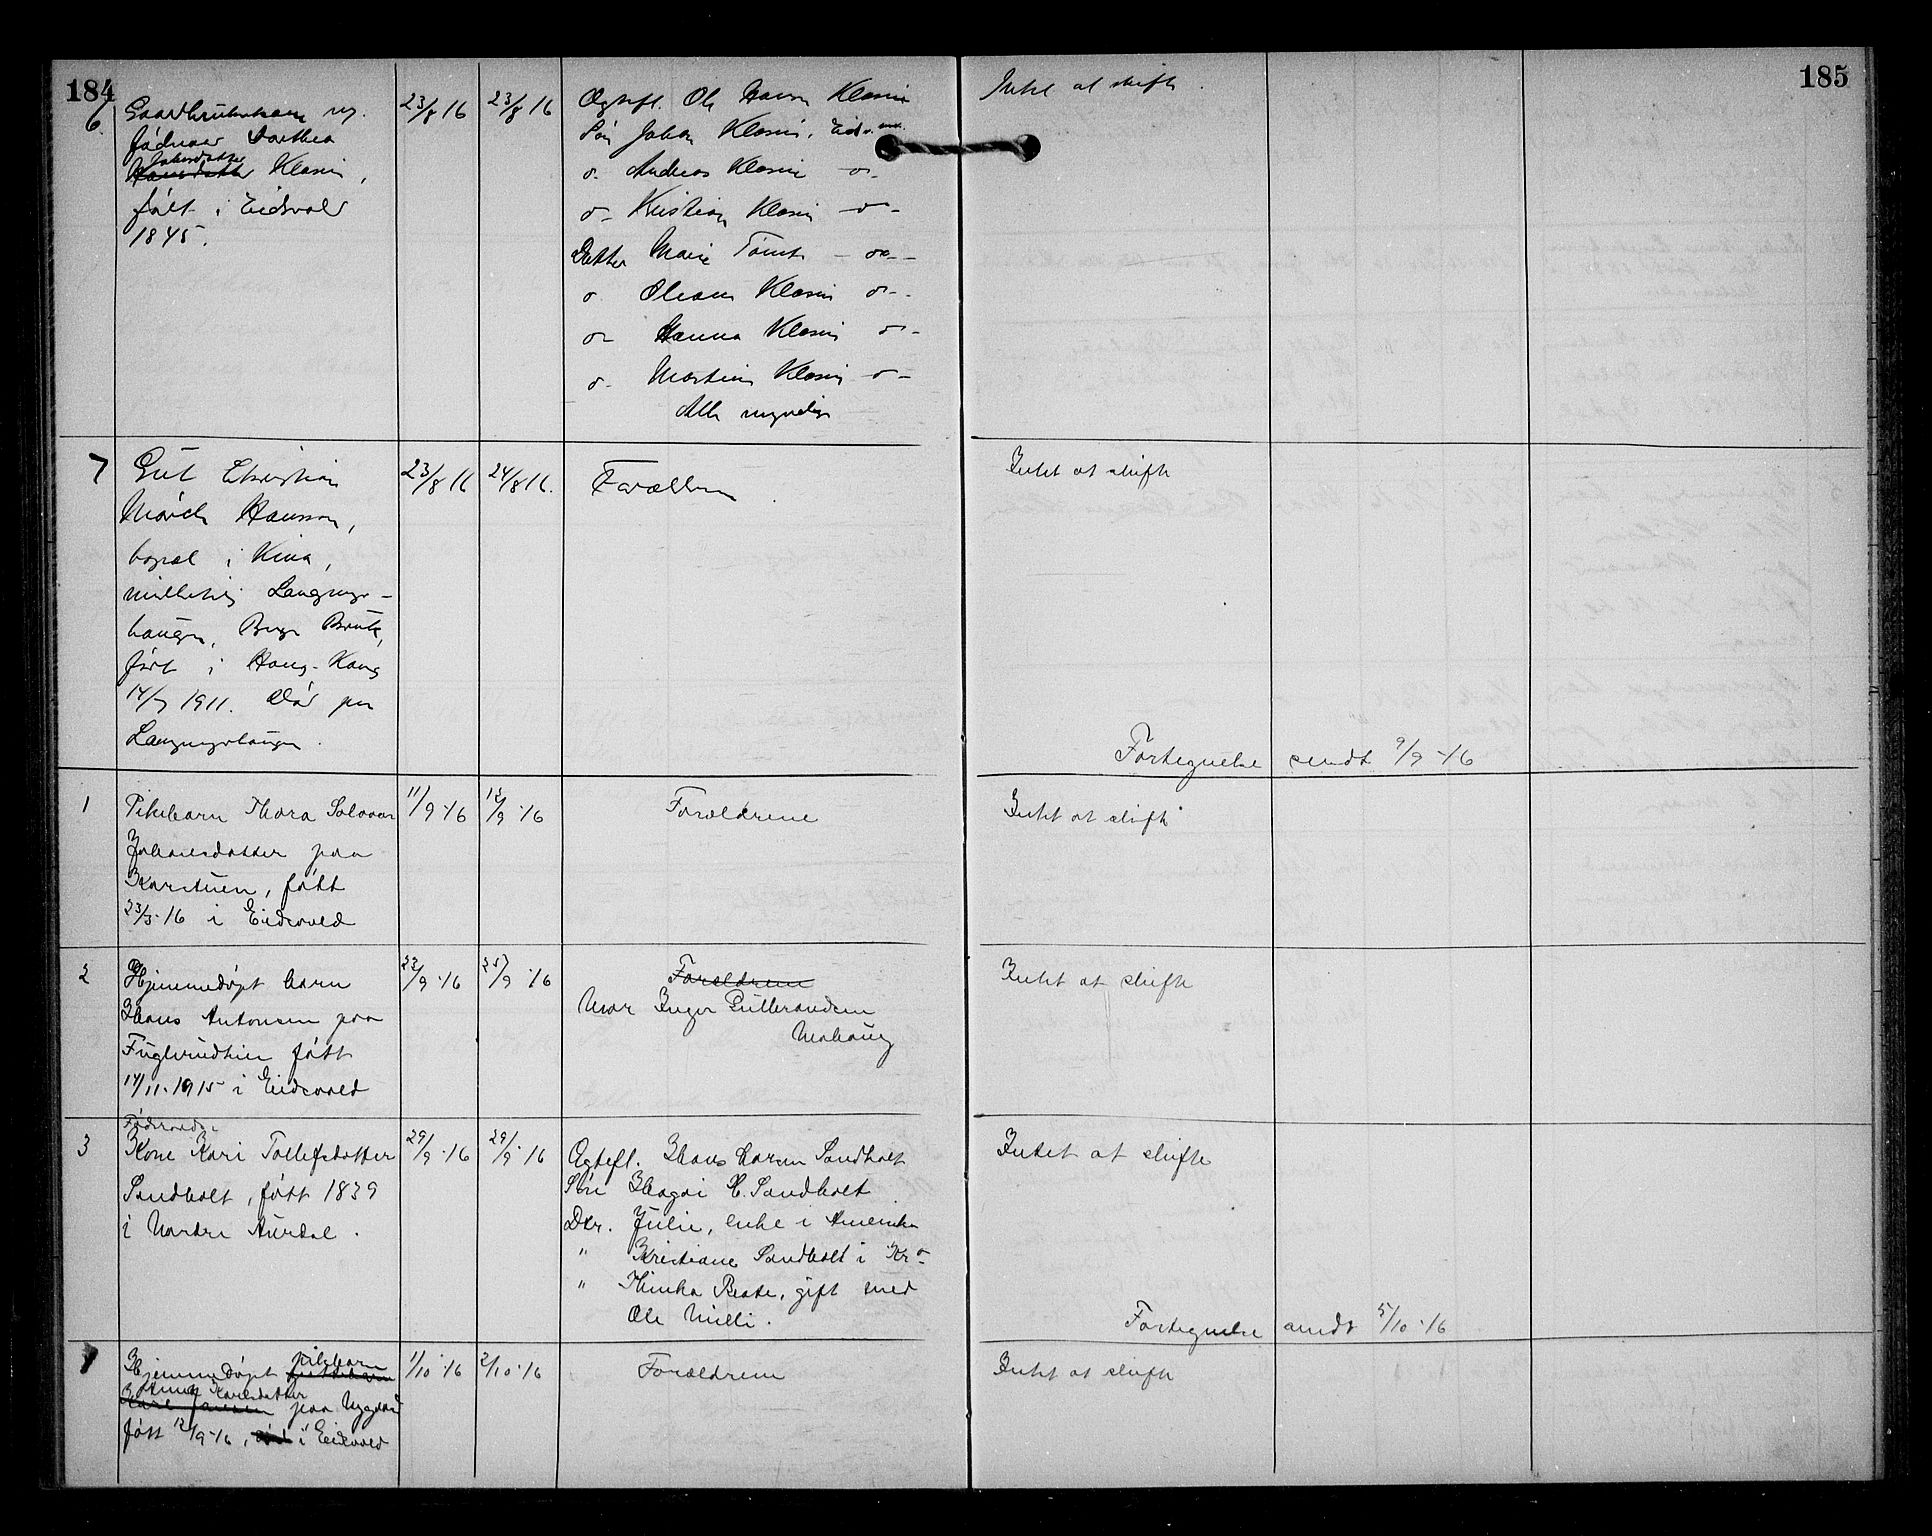 184
6. Gaardbrukerkone og
föderaad Dorthea
Johansdatter
Hansdatter Klasin,
født i Eidsvold
1845.
23/8 16
23/8 16
Ægtefl. Ole Hansen Klasin
Sön Johan Klasin, Eidsv.
do - Andreas Klasin do -
do - Kristian Klasin - do -
Datter Marie Tømte - do -
do Oleane Klasin do -
do - Hanna Klasin do -
do - Martin Klasin - do -
Alle myndige
Intet at skifte.
185
7 Gut Christian
Mörch Hansson,
bopæl i Kina,
midlertidig Langnys-
haugen,
født i Hong-Kong
14/7 1911. Död paa
Langnyshaugen.
23/8 16
24/8 16.
Forældrene
Intet at skifte
Fortegnelse sendt 9/9 -16
1 Pikebarn Thora Solvor
Johansdatter paa
Korstuen, født
23/3-16 i Eidsvold
11/9-16
12/9-16
Forældrene
Intet at skifte
2 Hjemmedøpt barn
Hans Antonsen paa
Fuglerudhein født
14/11-1915 i Eidsvold
23/9-16
25/9-16
Forældrene
Mor Inger Gulbrandsen
Mohaug
Intet at skifte
3 Föderaads-
Kone Kari Tollefsdatter
Sandholt, født 1839
i Nordre Aurdal.
29/9-16
29/9-16
Ægtefl. Hans Larsen Sandholt
Sön Hagai H. Sandholt
Dtr. Julie, enke i Amerika
" Kristiane Sandholt i Kr.a
" Thinka Beate, gift med
Ole Milli.
Intet at skifte
Fortegnelse sendt 5/10-16
1 Hjemmedøpt pikebarn
Anna Karlsdatter
Karl Jansen paa Nygaard
født 12/9-16, død i Eidsvold
1/10-16
2/10-16
Forældrene
Intet at skifte